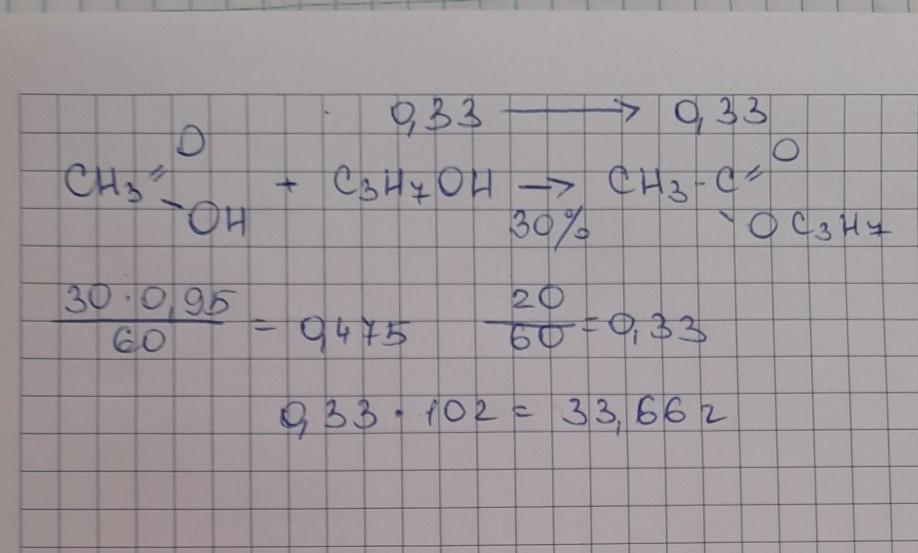 0,33 → 0,33
O O
CH3 = + C3H7OH → CH3 - C =
- OH 30% - OC3H7
30 · 0,95 / 60 = 0,475 20 / 60 = 0,33
0,33 · 102 = 33,66 г